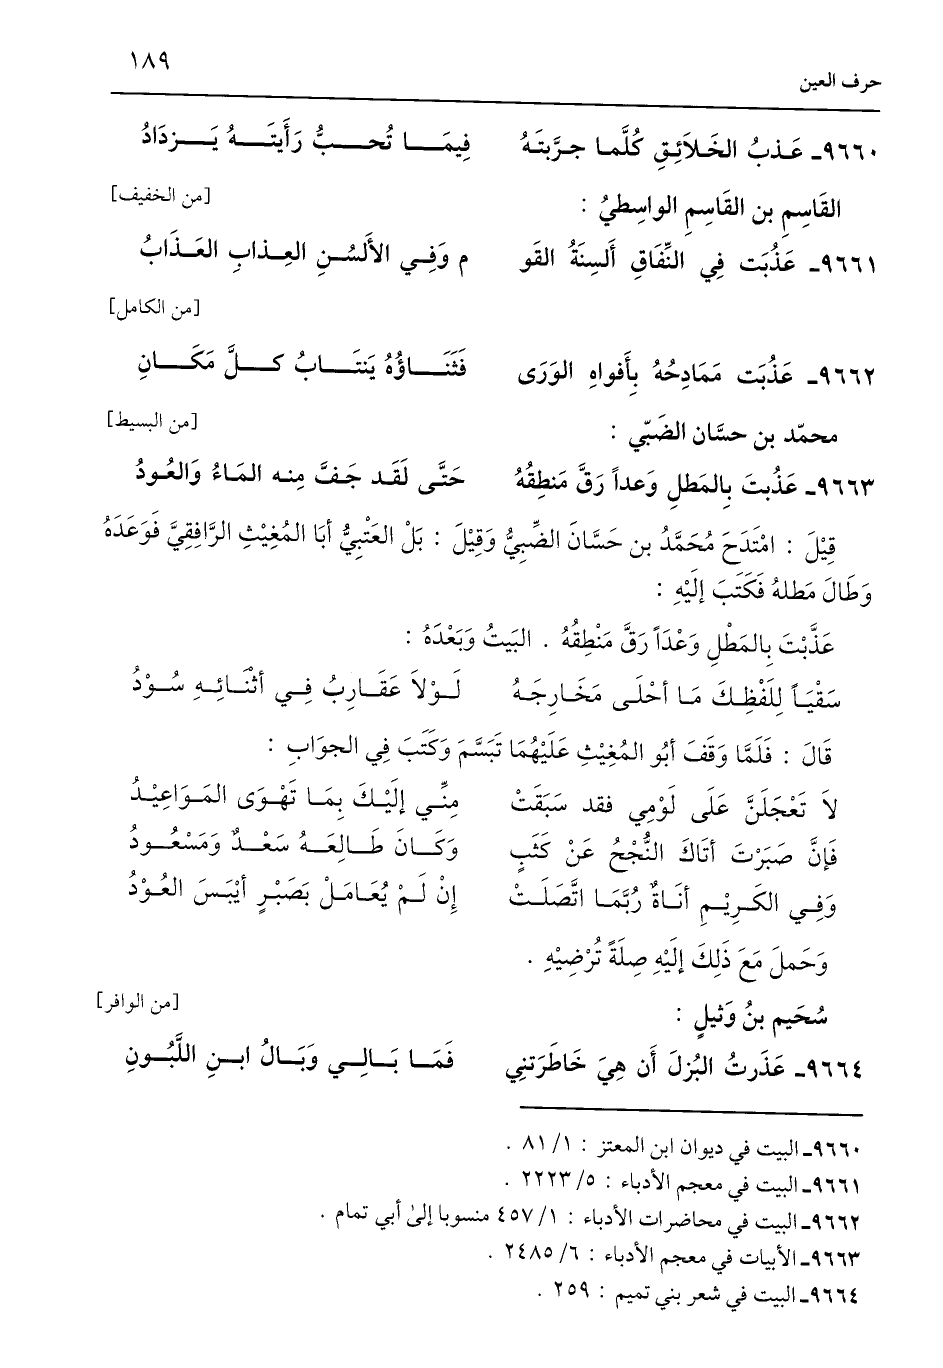 ١٨٩
حرف العين
٩٦٦٠ـ عَـذبُ الخَـلَائِـقِ كُلَّما جـرَّبتَـهُ فِيمَـــا تُحــبُّ رَأَيتَـــهُ يَـــزدَادُ
[من الخفيف]
القَاسِمِ بن القَاسِمِ الواسِطيُ :
٩٦٦١ـ عَذُبَت فِي النِّفَاقِ أَلسِنَةُ القَو م وَفِـي الأَلسُـنِ العِـذابِ العَـذَابُ
[من الكامل]
٩٦٦٢ـ عَذُبَت مَمَادِحُهُ بِأَفواهِ الوَرَى فَثَنَـــاؤُهُ يَنتَـــابُ كـــلَّ مَكَـــانِ
[من البسيط]
محمّد بن حسَّان الضَبّي :
٩٦٦٣ـ عَذُبتَ بِالمَطلِ وَعداً رَقَّ مَنطِقُهُ حَتَّى لَقَـد جَـفَّ مِنـه المَـاءُ وَالعُـودُ
قِيْلَ : امْتَدَحَ مُحَمَّدُ بن حَسَّانَ الضِّبيُّ وَقِيْلَ : بَلْ العَتْبِيُّ أبَا المُغِيْثِ الرَّافِقِيَّ فَوَعَدَهُ
وَطَالَ مَطلهُ فَكَتَبَ إلَيْهِ :
عَذَّبْتَ بِالمَطْلِ وَعْدَاً رَقَّ مَنْطِقُهُ . البَيتُ وَبَعْدَهُ :
سَقْيَـاً لِلَفْظِـكَ مَـا أَحْلَـى مَخَـارِجَـهُ لَـوْلاَ عَقَـارِبُ فِـي أثْنَـائِـهِ سُـوْدُ
قَالَ : فَلَمَّا وَقَفَ أبُو المُغِيْثِ عَلَيْهُمَا تَبَسَّمَ وَكَتَبَ فِي الجوَابِ :
لاَ تَعْجَلَنَّ عَلَى لَوْمِي فقد سَبَقَتْ مِنِّـي إلَيْـكَ بِمَـا تَهْـوَى المَـوَاعِيْـدُ
فَإنَّ صَبَرْتَ أتَاكَ النُّجْحُ عَنْ كَثَبٍ وَكَـانَ طَـالِعَـهُ سَعْـدٌ وَمَسْعُـودُ
وَفِي الكَـرِيْـمِ أنَـاةٌ رُبَّمَـا اتَّصَلَـتْ إنْ لَـمْ يُعَـامَـلْ بَصَبْـرٍ أيْبَـسَ العُـوْدُ
وَحَملَ مَعَ ذَلِكَ إلَيْهِ صِلَةً تُرْضِيْهِ .
[من الوافر]
سُحَيم بنُ وَثيلٍ :
٩٦٦٤ـ عَذَرتُ البُزلَ أَن هِيَ خَاطَرَتني فَمَـا بَـالِـي وَبَـالُ ابـنِ اللَّبُـونِ
٩٦٦٠ـ البيت في ديوان ابن المعتز : ١/ ٨١ .
٩٦٦١ـ البيت في معجم الأدباء : ٥/ ٢٢٢٣ .
٩٦٦٢ـ البيت في محاضرات الأدباء : ١/ ٤٥٧ منسوبا إلى أبي تمام .
٩٦٦٣ـ الأبيات في معجم الأدباء : ٦/ ٢٤٨٥ .
٩٦٦٤ـ البيت في شعر بني تميم : ٢٥٩ .